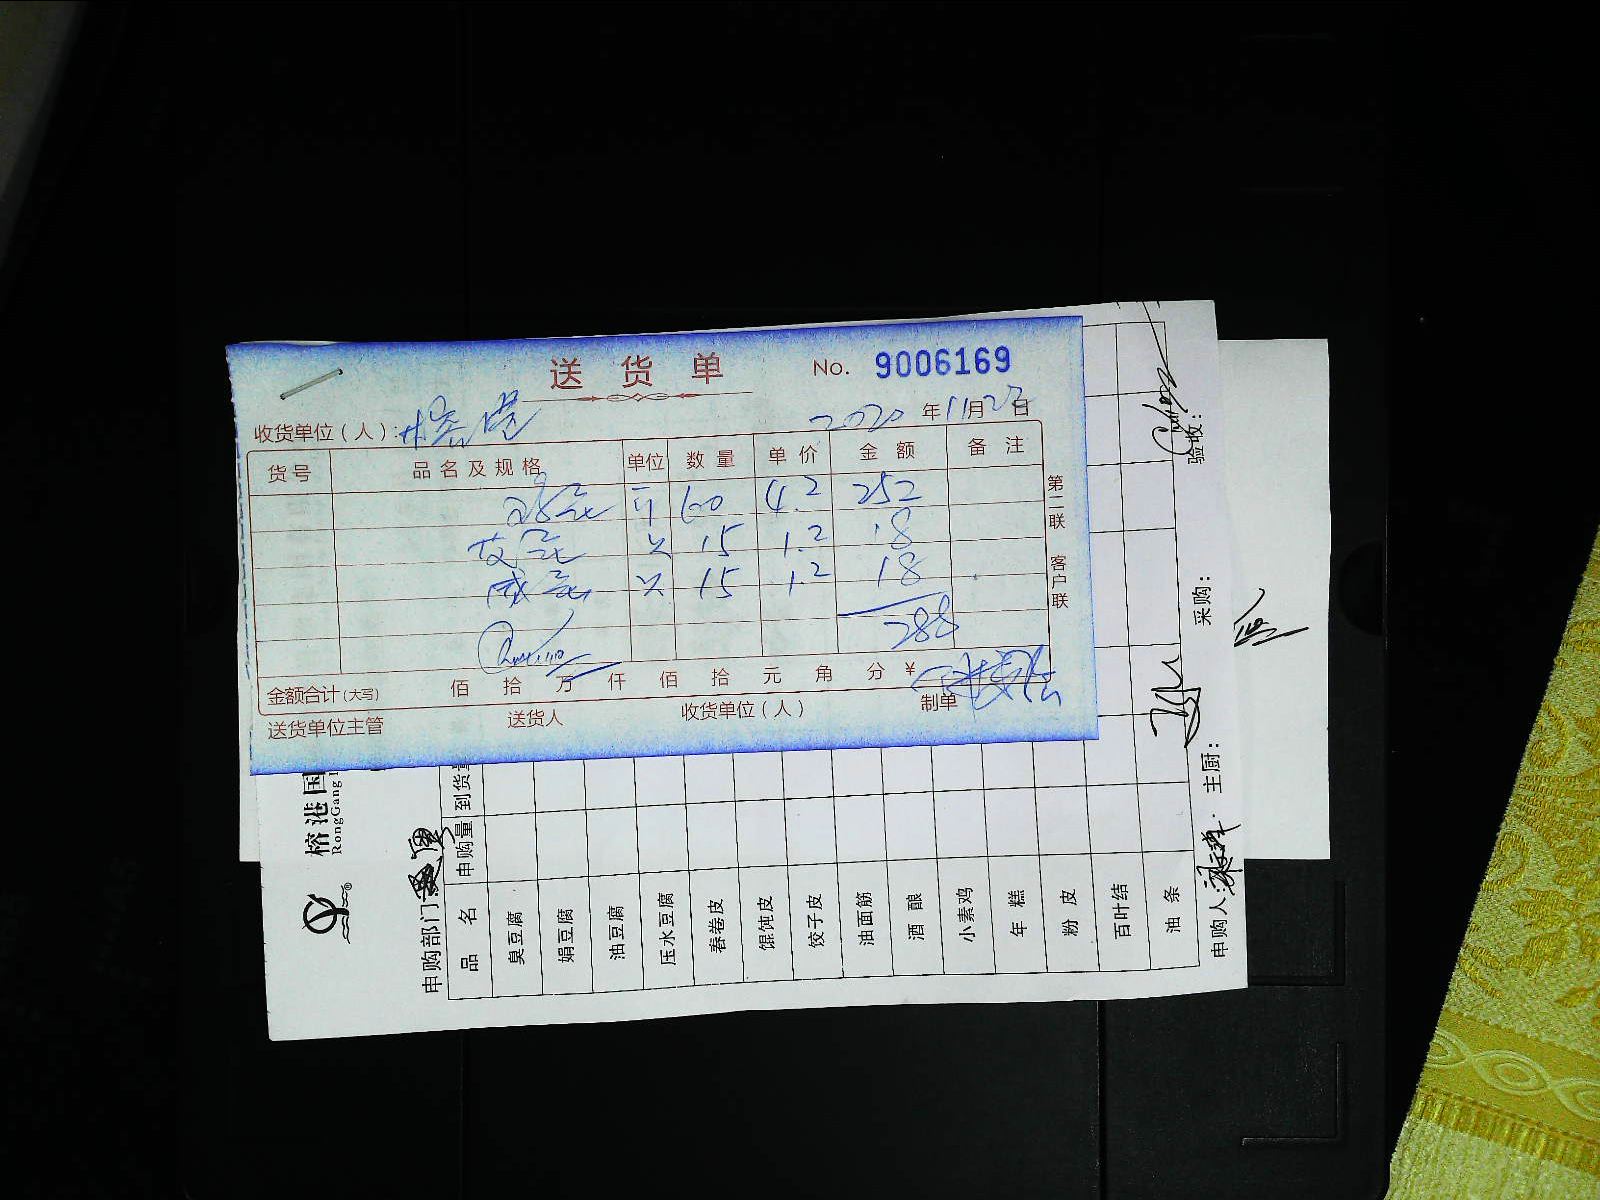 送货单
No. 9006169
收货单位(人): 榕港
2020 年 11 月 23 日
货号 品名及规格 单位 数量 单价 金额 备注
斤 60 4.2 252
皮蛋 只 15 1.2 18
咸蛋 只 15 1.2 18
288
金额合计(大写) 佰 拾 万 仟 佰 拾 元 角 分 ¥
送货单位主管 送货人 收货单位(人) 制单
第二联 客户联
榕港国
RongGang
申购部门:
品名 申购量 到货量
臭豆腐
娟豆腐
油豆腐
压水豆腐
春卷皮
馄饨皮
饺子皮
油面筋
酒酿
小素鸡
年糕
粉皮
百叶结
油条
申购人: 主厨: 采购: 验收: